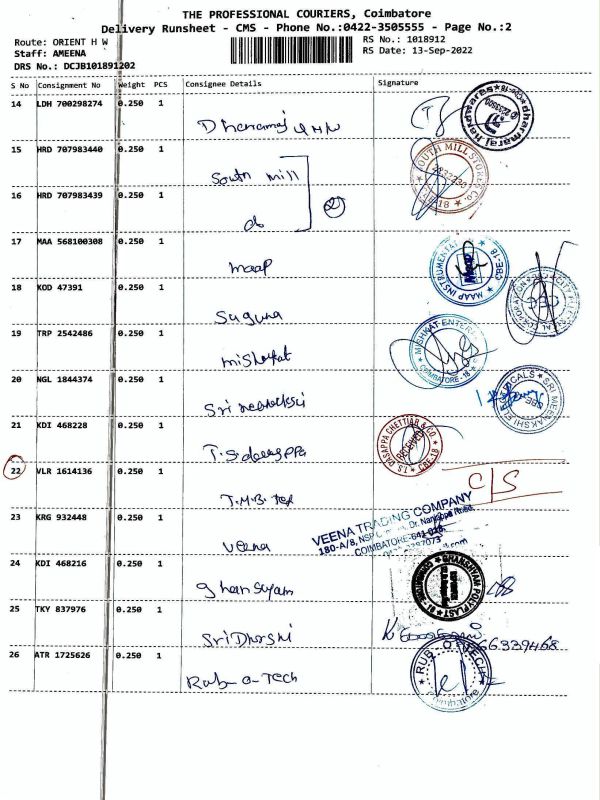 THE PROFESSIONAL COURIERS, Coimbatore
Delivery Runsheet - CMS - Phone No.:0422-3505555 - Page No.:2
Route: ORIENT H W
RS No.: 1018912
Staff: AMEENA
RS Date: 13-Sep-2022
DRS No.: DCJB101891202
S No Consignment No Weight PCS Consignee Details Signature
14 LDH 700298274 0.250 1
dharmaraj Hardwares
15 HRD 707983440 0.250 1 South mill
SOUTH MILL STORES Co.
16 HRD 707983439 0.250 1
do
17 MAA 568100308 0.250 1 maap
MAAP INSTRUMENTAT
Maap
CBE-18
18 KOD 47391 0.250 1
Suguna
19 TRP 2542486 0.250 1
MISHKAT ENTER
COIMBATORE - 18
20 NGL 1844374 0.250 1
Sri
SRI MEENAKSHI
CBE
21 KDI 468228 0.250 1
T.S.
T.S. PASAPPA CHETTIAR & CO.
RECEIVED
CBE-18
22 VLR 1614136 0.250 1
C/S
T.M.B.
23 KRG 932448 0.250 1
Veena
VEENA TRADING COMPANY
180-A/8, NSP Dr. Nanjappa Road,
COIMBATORE-641 018.
24 KDI 468216 0.250 1
Ghansyam
GHANSHYAM POLY PLAST
25 TKY 837976 0.250 1
Sri Dharshi
26 ATR 1725626 0.250 1
Rub-o-Tech
RUB O TECH
Coimbatore